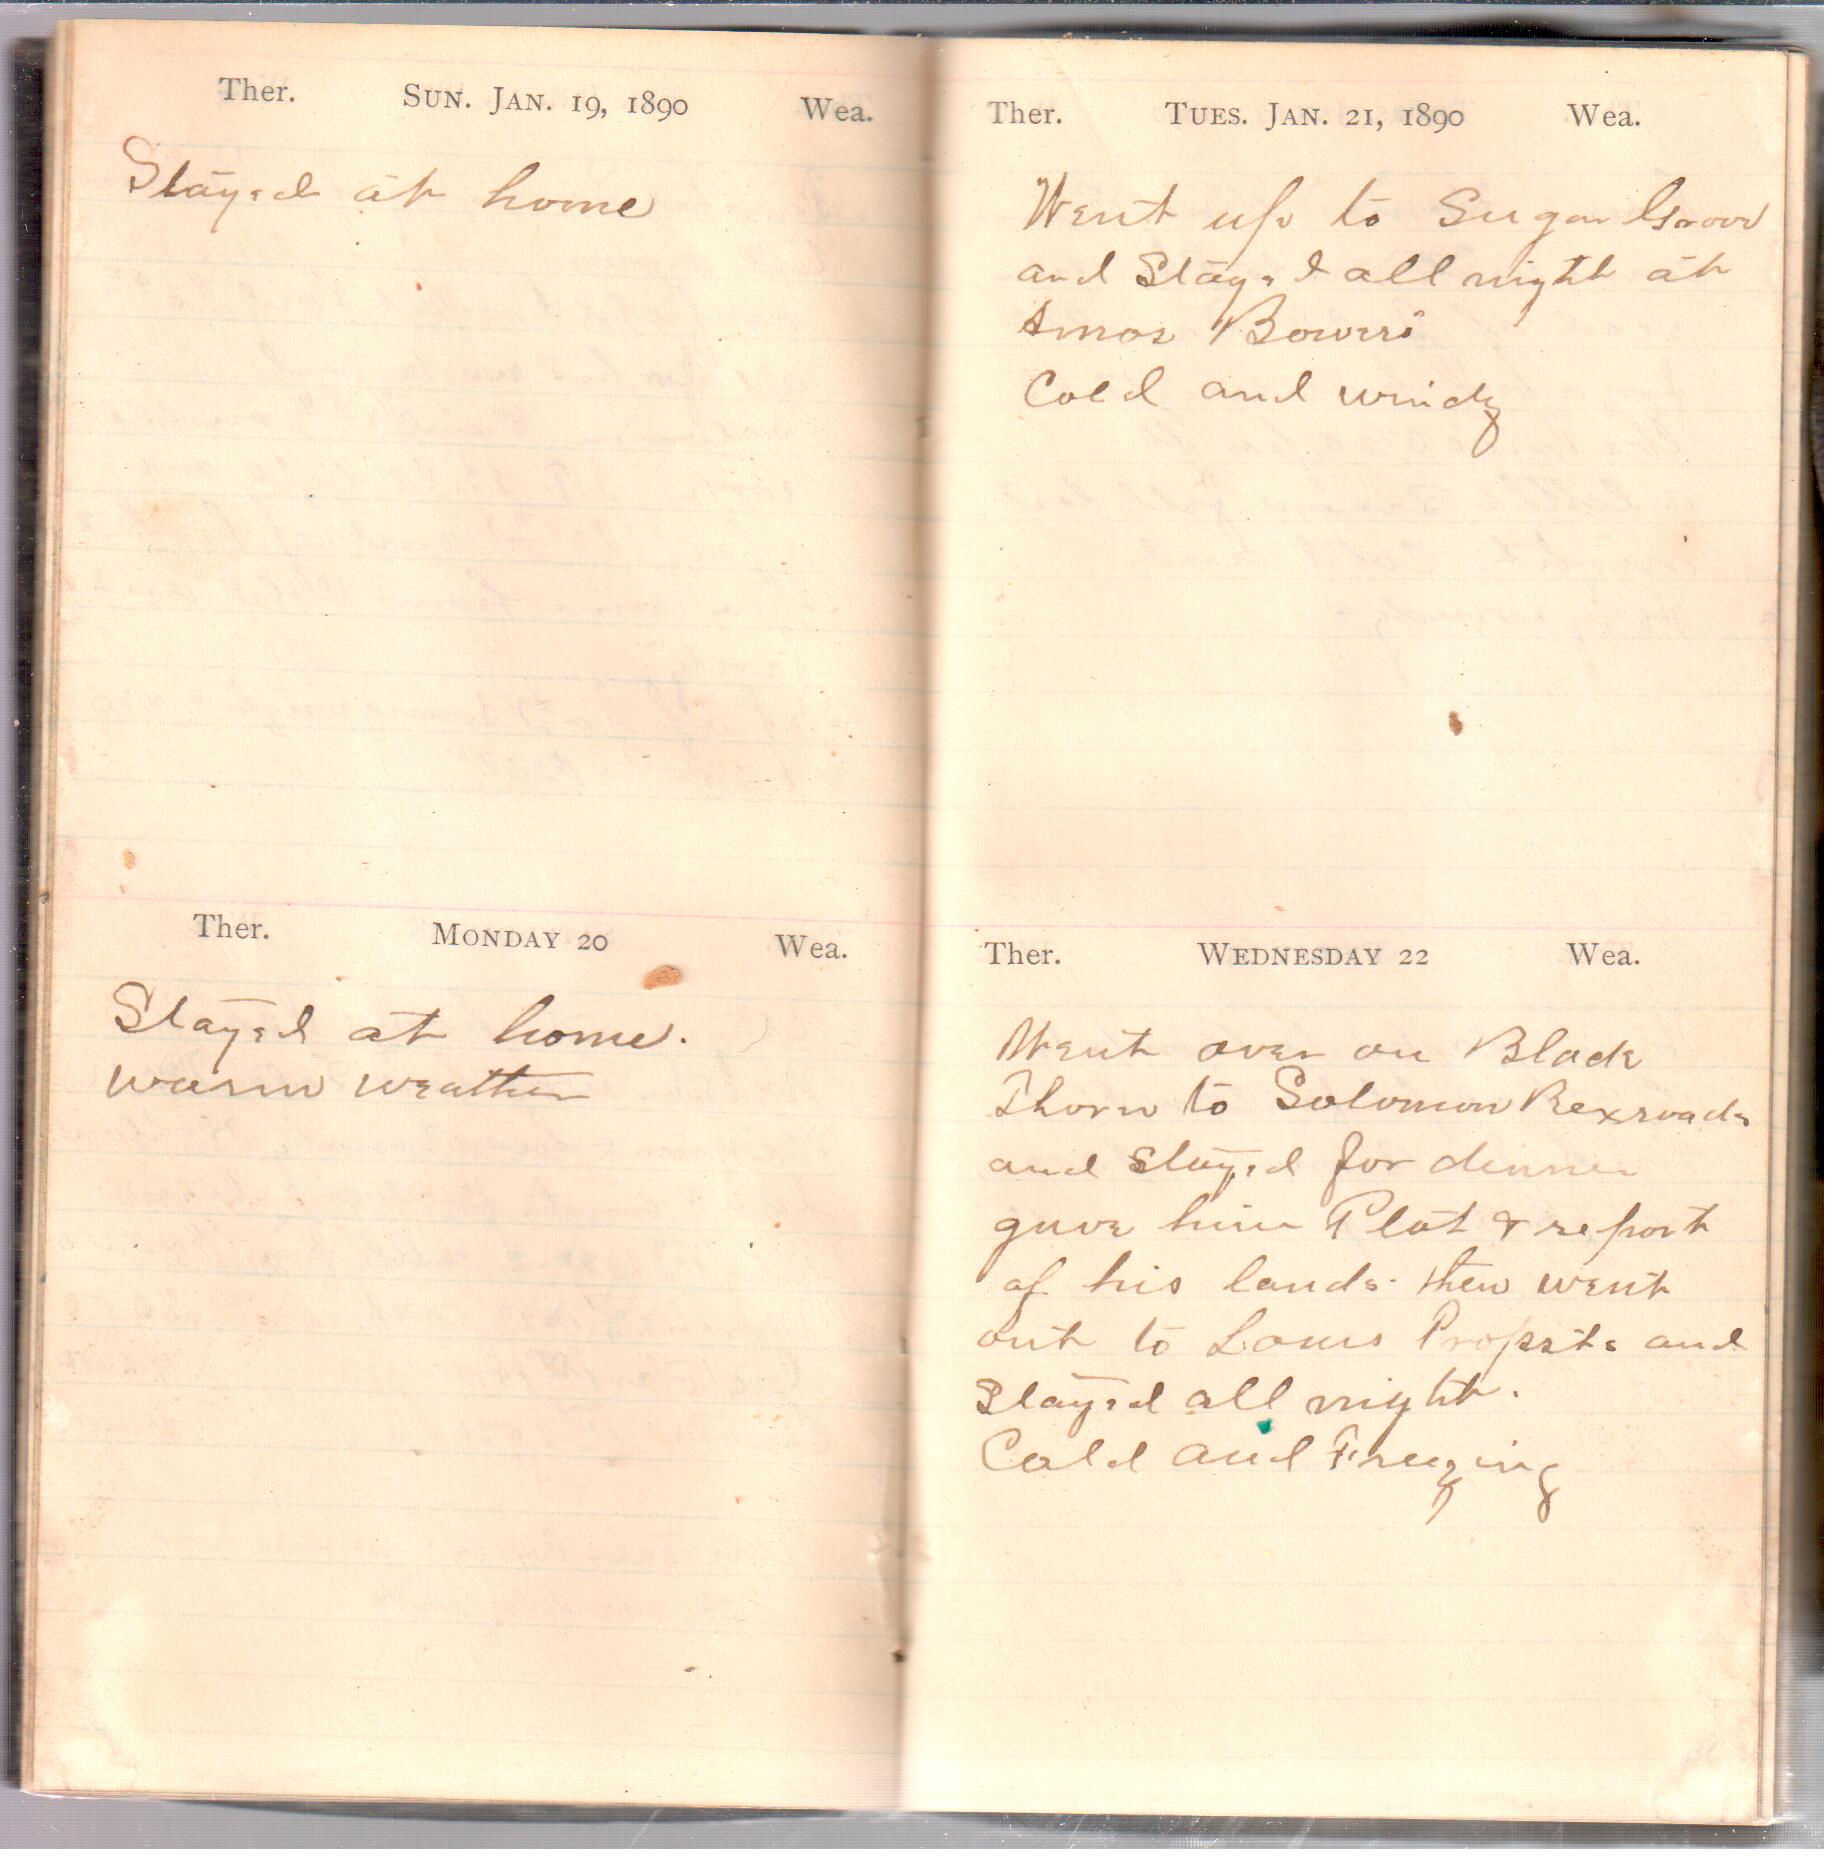 Ther. SUN. JAN. 19, 1890 Wea.
Stayed at home
Ther. MONDAY 20 Wea.
Stayed at home.
warm weather
Ther. TUES. JAN. 21, 1890 Wea.
Went up to Sugar Grove
and Stayed all night at
Amos Bowers
Cold and windy
Ther. WEDNESDAY 22 Wea.
Went over on Black
Thorn to Solomon Rexroads
and Stayed for dinner
gave him Plat & report
of his lands. then went
out to Louis Propsts and
Stayed all night.
Cold and Freezing